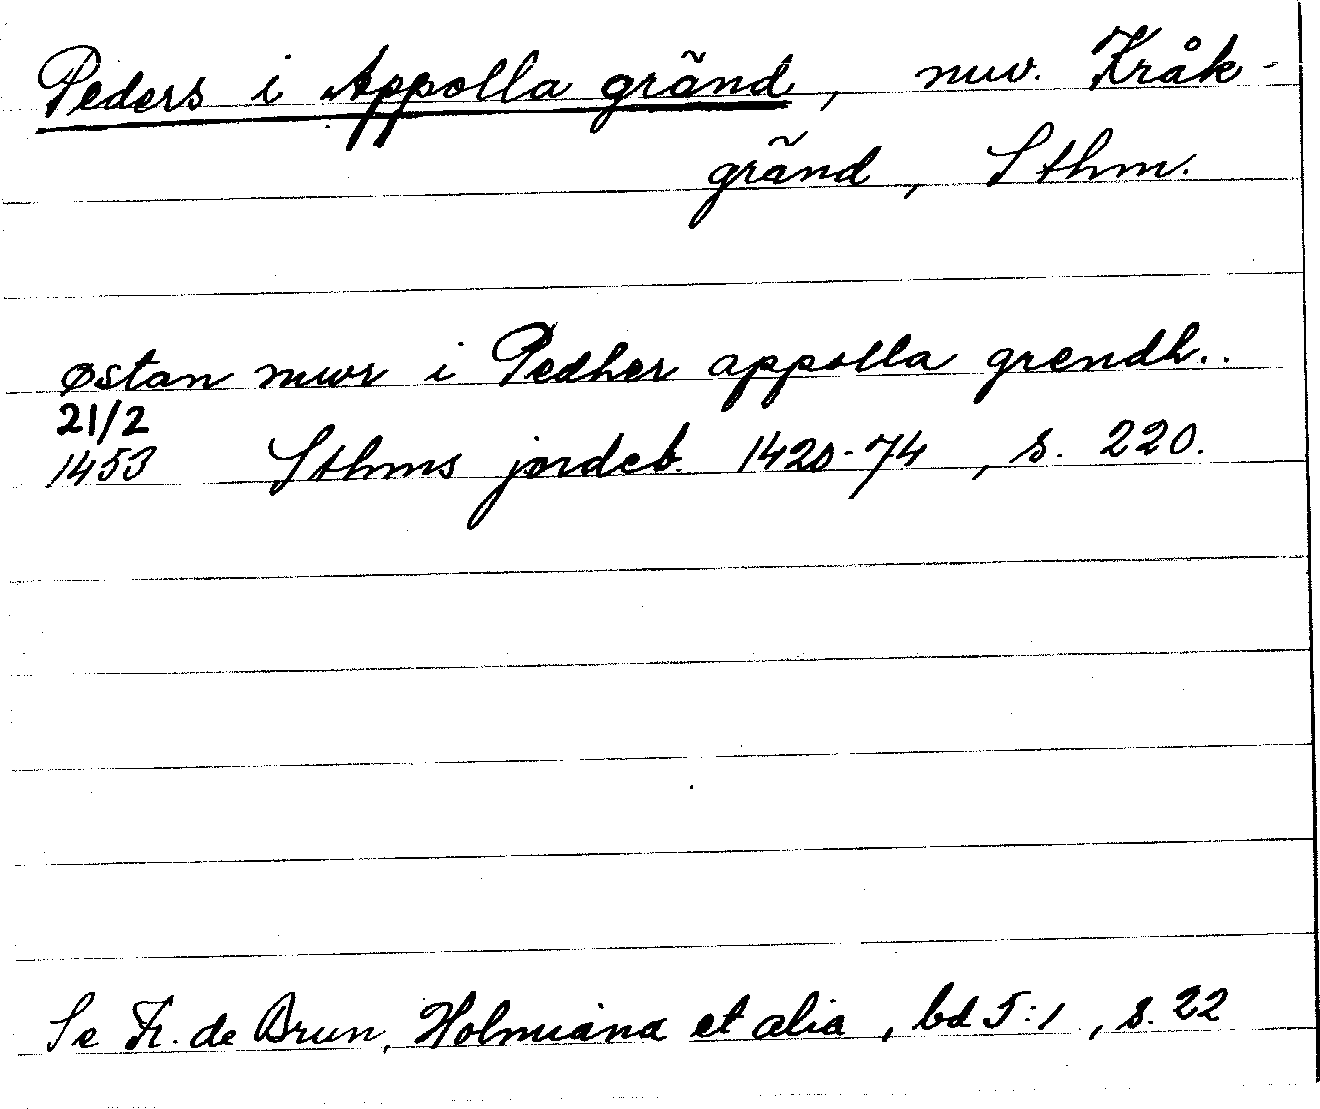 Peders i Appolla gränd, nuv. Kråk-
gränd, Sthm.
østan mwr i Pedher appolla grendh..
21/2
1453 Sthms jordeb. 1420-74, s. 220.
Se Fr. de Brun, Holmiana et alia, bd 5:1, s. 22